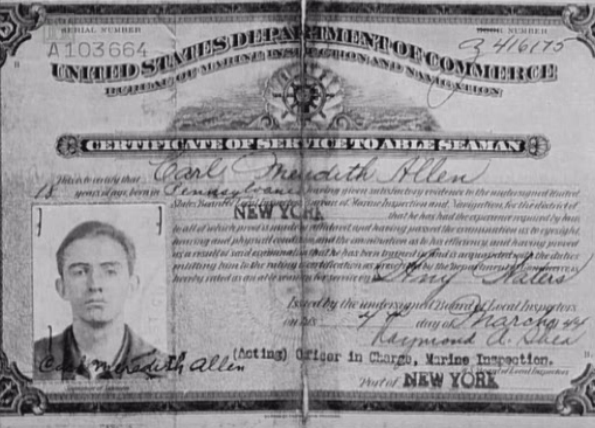 SERIAL NUMBER
A103664
BOOK NUMBER
Z 416175
UNITED STATES DEPARTMENT OF COMMERCE
BUREAU OF MARINE INSPECTION AND NAVIGATION
CERTIFICATE OF SERVICE TO ABLE SEAMAN
This is to certify that Carl Meredith Allen
18 years of age, born in Pennsylvania having given satisfactory evidence to the undersigned United
States Board of Local Inspectors Bureau of Marine Inspection and Navigation, for the district of
NEW YORK that he has had the experience required by law,
to all of which proof is made by affidavit and having passed the examination as to eyesight,
hearing and physical condition and the examination as to his efficiency and having proved
as a result of said examination that he has been trained in and is acquainted with the duties
entitling him to the rating of certification as prescribed by the Department of Commerce is
hereby rated as an able seaman for service on Any Waters
Issued by the undersigned Board of Local Inspectors
on this day of March 44
Raymond A. Shea
Carl Meredith Allen
(Acting) Officer in Charge, Marine Inspection.
of Local Inspectors
Port of NEW YORK